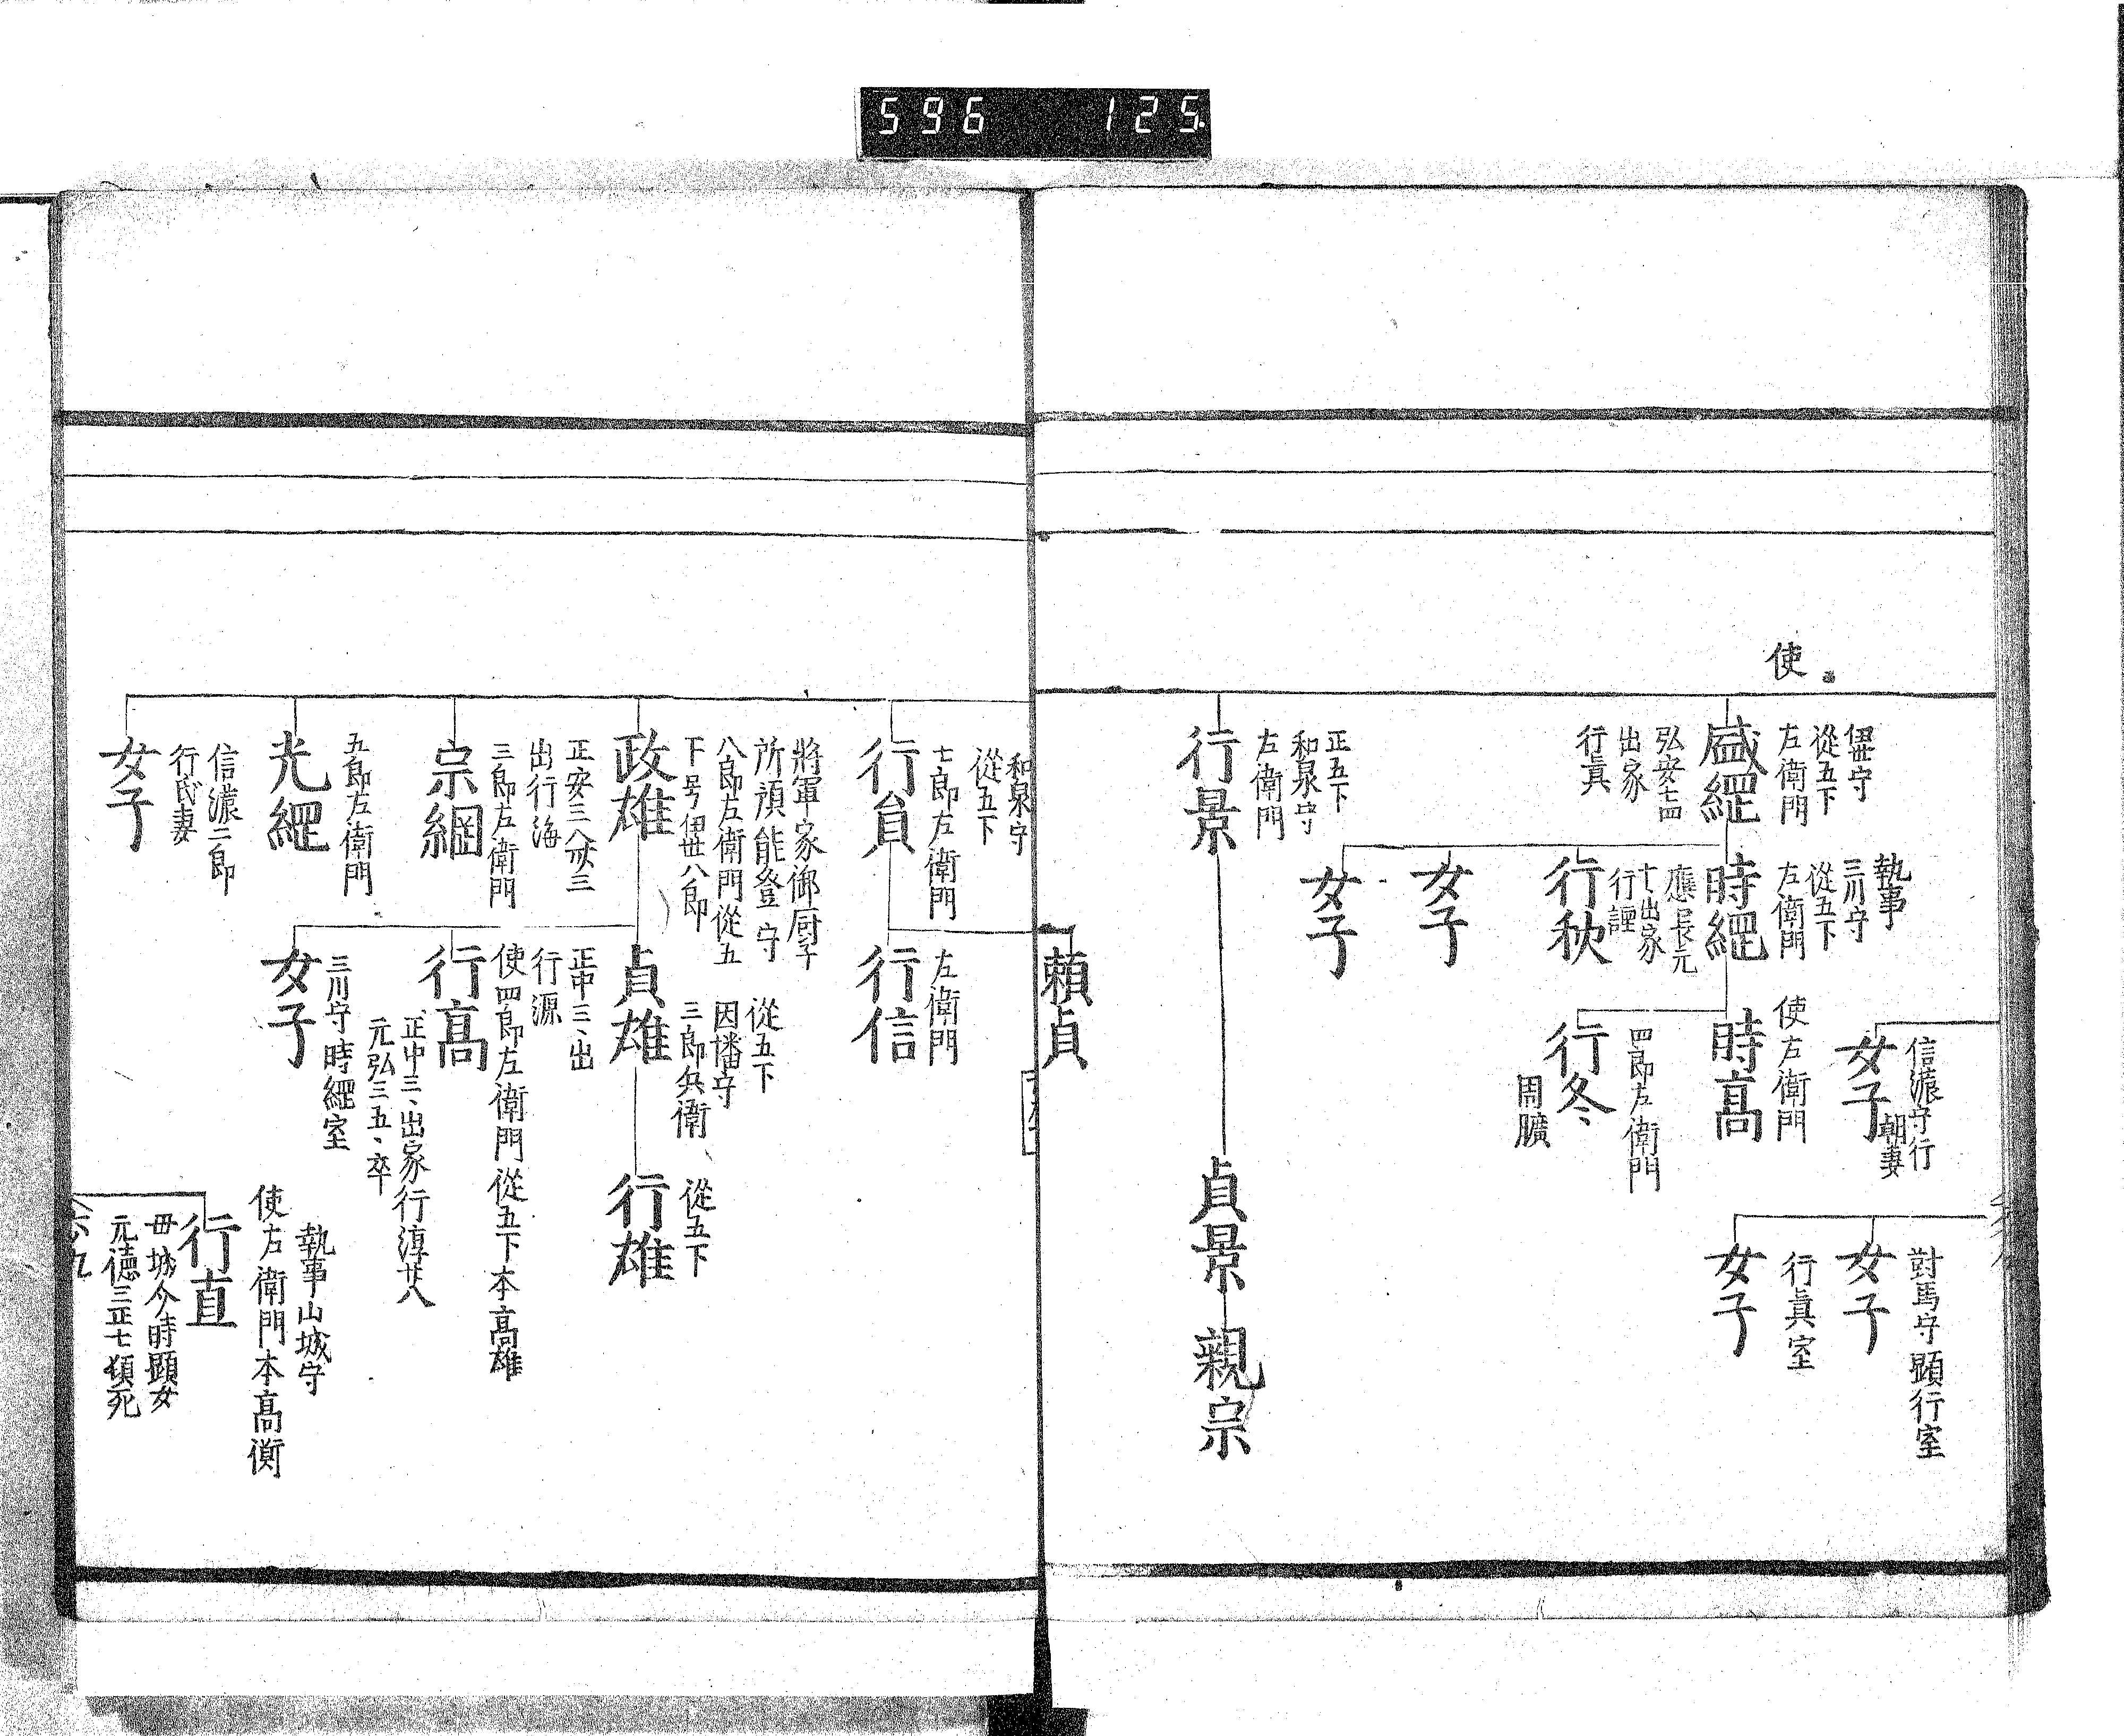 596 125
使
伊世守
從五下
左衛門
盛經
弘安七四
出家
行眞
執事
三川守
從五下
左衛門
時經
應長元
十、出家
行諲
行秋
女子
女子
信濃守行
朝妻
女子
使左衛門
時高
四郎左衛門
行冬
周曠
對馬守顯行室
女子
行眞室
女子
正五下
和泉守
左衛門
行景
貞景
親宗
頼貞
和泉守
從五下
七郎左衛門
行員
左衛門
行信
將軍家御厨子
所須能登守
八郎左衛門從五
下号伊世八郎
政雄
正安三八廿三
出行海
從五下
因幡守
三郎兵衛
貞雄
正中三、出
行源
從五下
行雄
三郎左衛門
宗綱
使四郎左衛門從五下本高雄
行高
正中三、出家行淳廿八
元弘三五、卒
五郎左衛門
光經
三川守時經室
女子
執事山城守
使左衛門本高衡
行直
母城介時顯女
元德三正七頓死
信濃二郎
行氏妻
女子